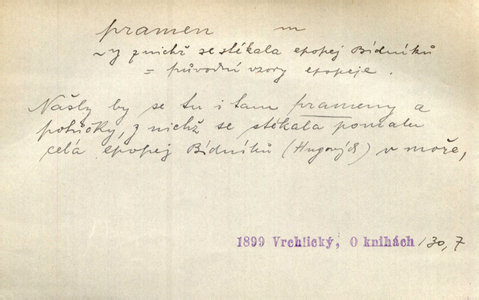 pramen m
~y z nichž se stékala epopej Bídníků
= původní vzory epopeje.
Našly by se tu i tam prameny a
potůčky, z nichž se stékala pomalu
celá epopej Bídníků (Hugových) v moře,
1899 Vrchlický, O knihách 130,7